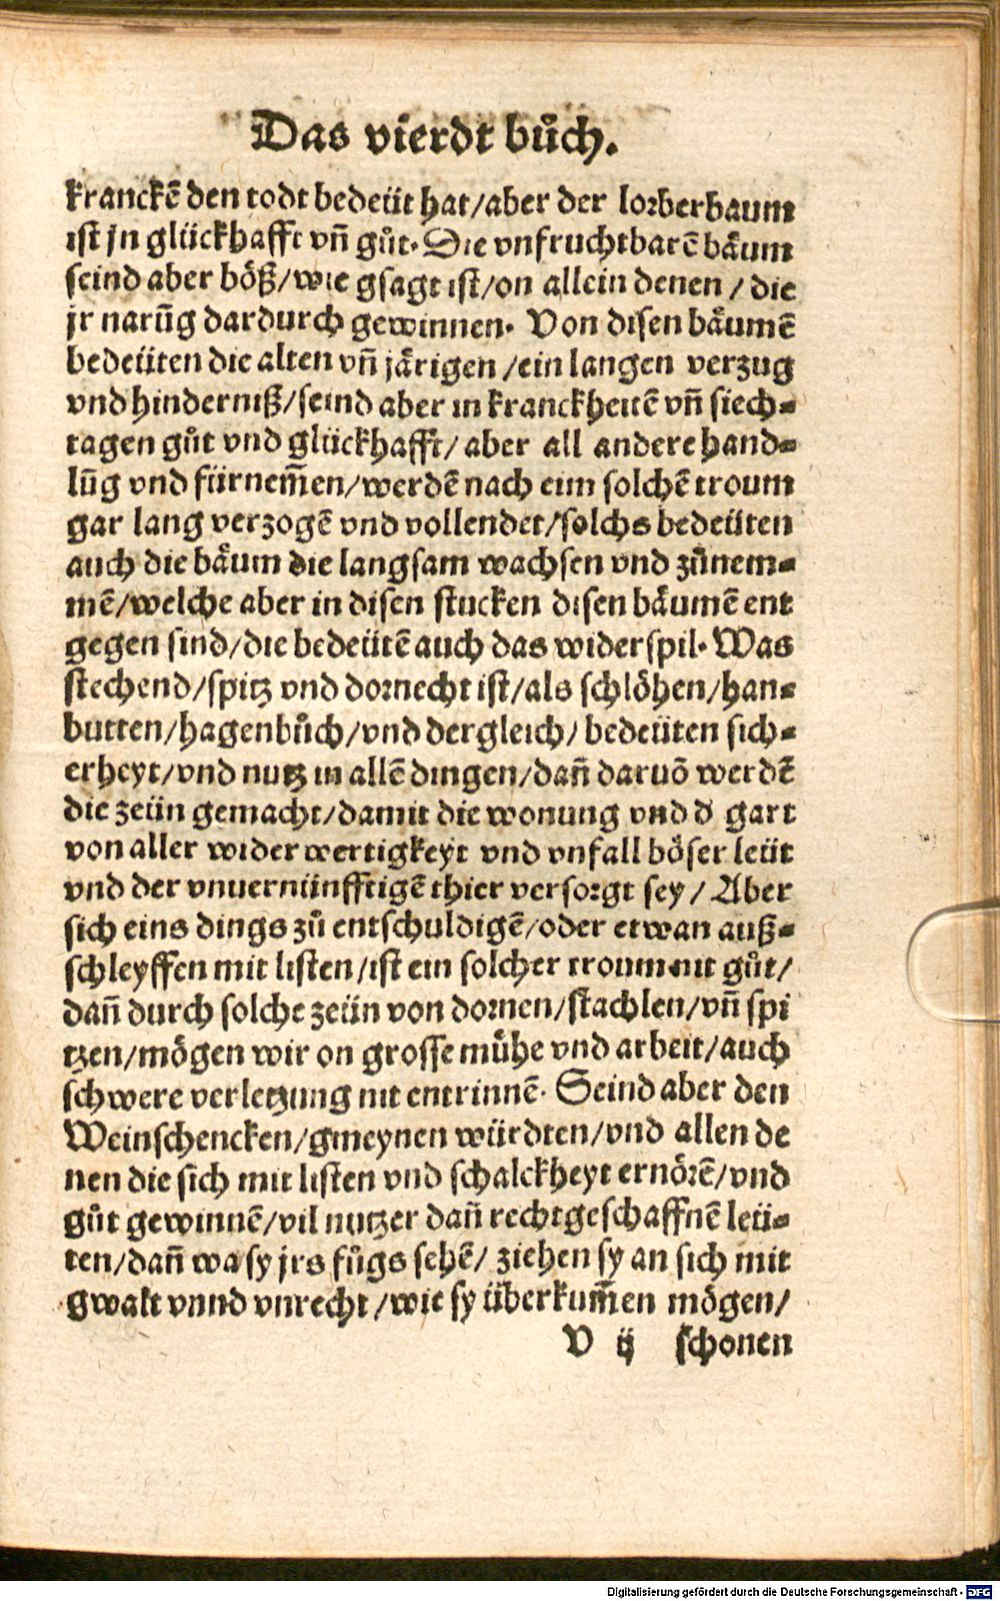 Das vierdt bůch.
kranckē den todt bedeüt hat/aber der lorberbaum
ist jn glückhafft vñ gůt. Die vnfruchtbarē båum
seind aber böß/wie gsagt ist/on allein denen / die
jr narūg dardurch gewinnen. Von disen båumē
bedeüten die alten vñ jårigen /ein langen verzug
vnd hinderniß/seind aber in kranckheitē vñ siech⸗
tagen gůt vnd glückhafft/ aber all andere hand⸗
lūg vnd fürnem̄en/werdē nach eim solchē troum
gar lang verzogē vnd vollendet/solchs bedeüten
auch die båum die langsam wachsen vnd zůnem⸗
mē/welche aber in disen stucken disen båumē ent
gegen sind/die bedeütē auch das widerspil. Was
stechend/spitz vnd dornecht ist/als schlöhen/han⸗
butten/hagenbůch/vnd dergleich/ bedeüten sich⸗
erheyt/vnd nutz in allē dingen/dañ daruō werdē
die zeün gemacht/damit die wonung vnd d̕ gart
von aller widerwertigkeyt vnd vnfall böser leüt
vnd der vnuernünfftigē thier versorgt sey/ Aber
sich eins dings zů entschuldigē/oder etwan auß⸗
schleyffen mit listen/ist ein solcher troum nit gůt/
dañ durch solche zeün von dornen/stachlen/vñ spi
tzen/mögen wir on grosse můhe vnd arbeit/auch
schwere verletzung nit entrinnē. Seind aber den
Weinschencken/gmeynen würdten/vnd allen de
nen die sich mit listen vnd schalckheyt ernörē/vnd
gůt gewinnē/vil nutzer dañ rechtgeschaffnē leü⸗
ten/dañ wa sy jrs fůgs sehē/ ziehen sy an sich mit
gwalt vnnd vnrecht/wie sy überkum̄en mögen/
V ij schonen
Digitalisierung gefördert durch die Deutsche Forschungsgemeinschaft - DFG